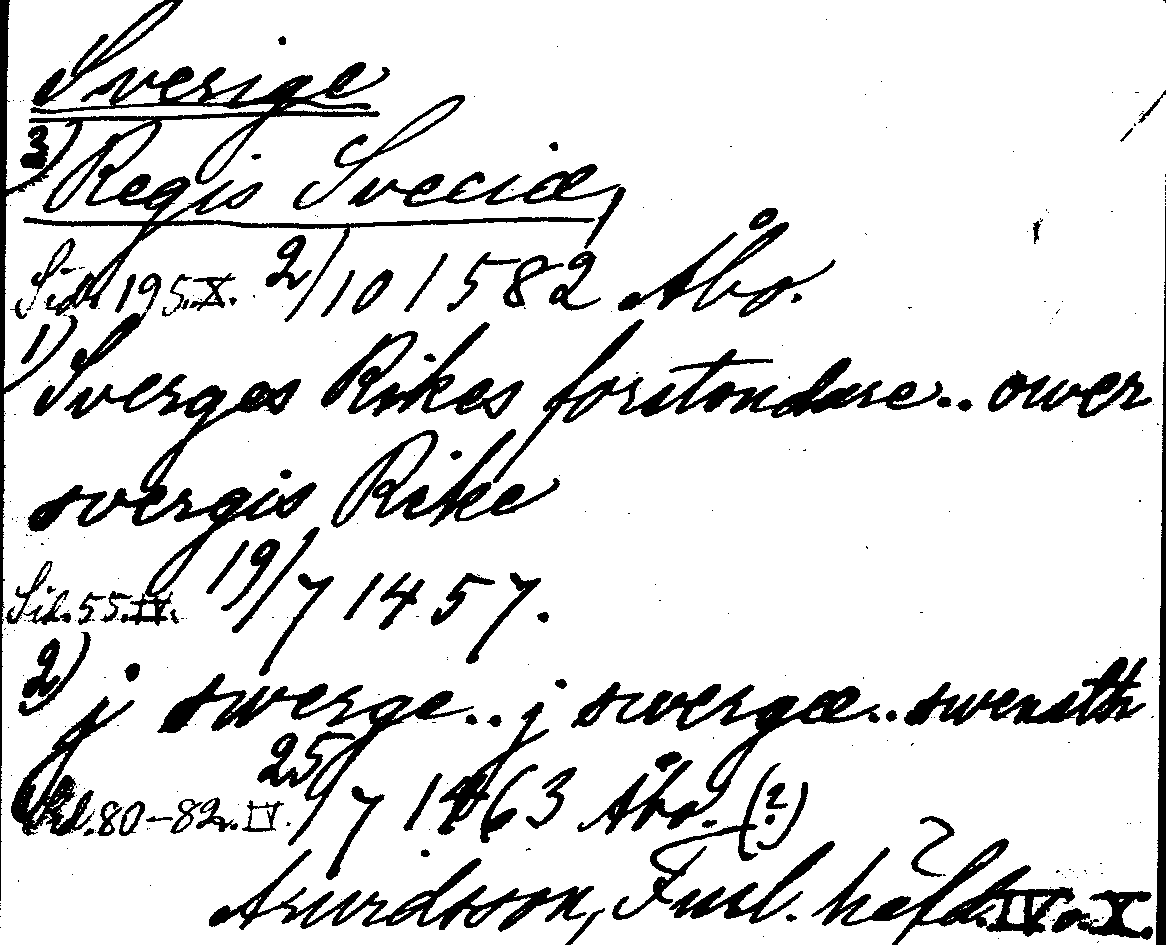 Sverige
3) Regis Sveciæ,
Sid. 195.X. 2/10 1582 Åbo.
1) Sverges Rikes forstondare.. ower
svergis Rike
Sid. 55.IV. 19/7 1457.
2) j swerge.. j swergæ.. swensth
Sid. 80-82. IV. 25/7 1463 Åbo. (?)
Arwidsson, Finl. häfd. IV o. X.